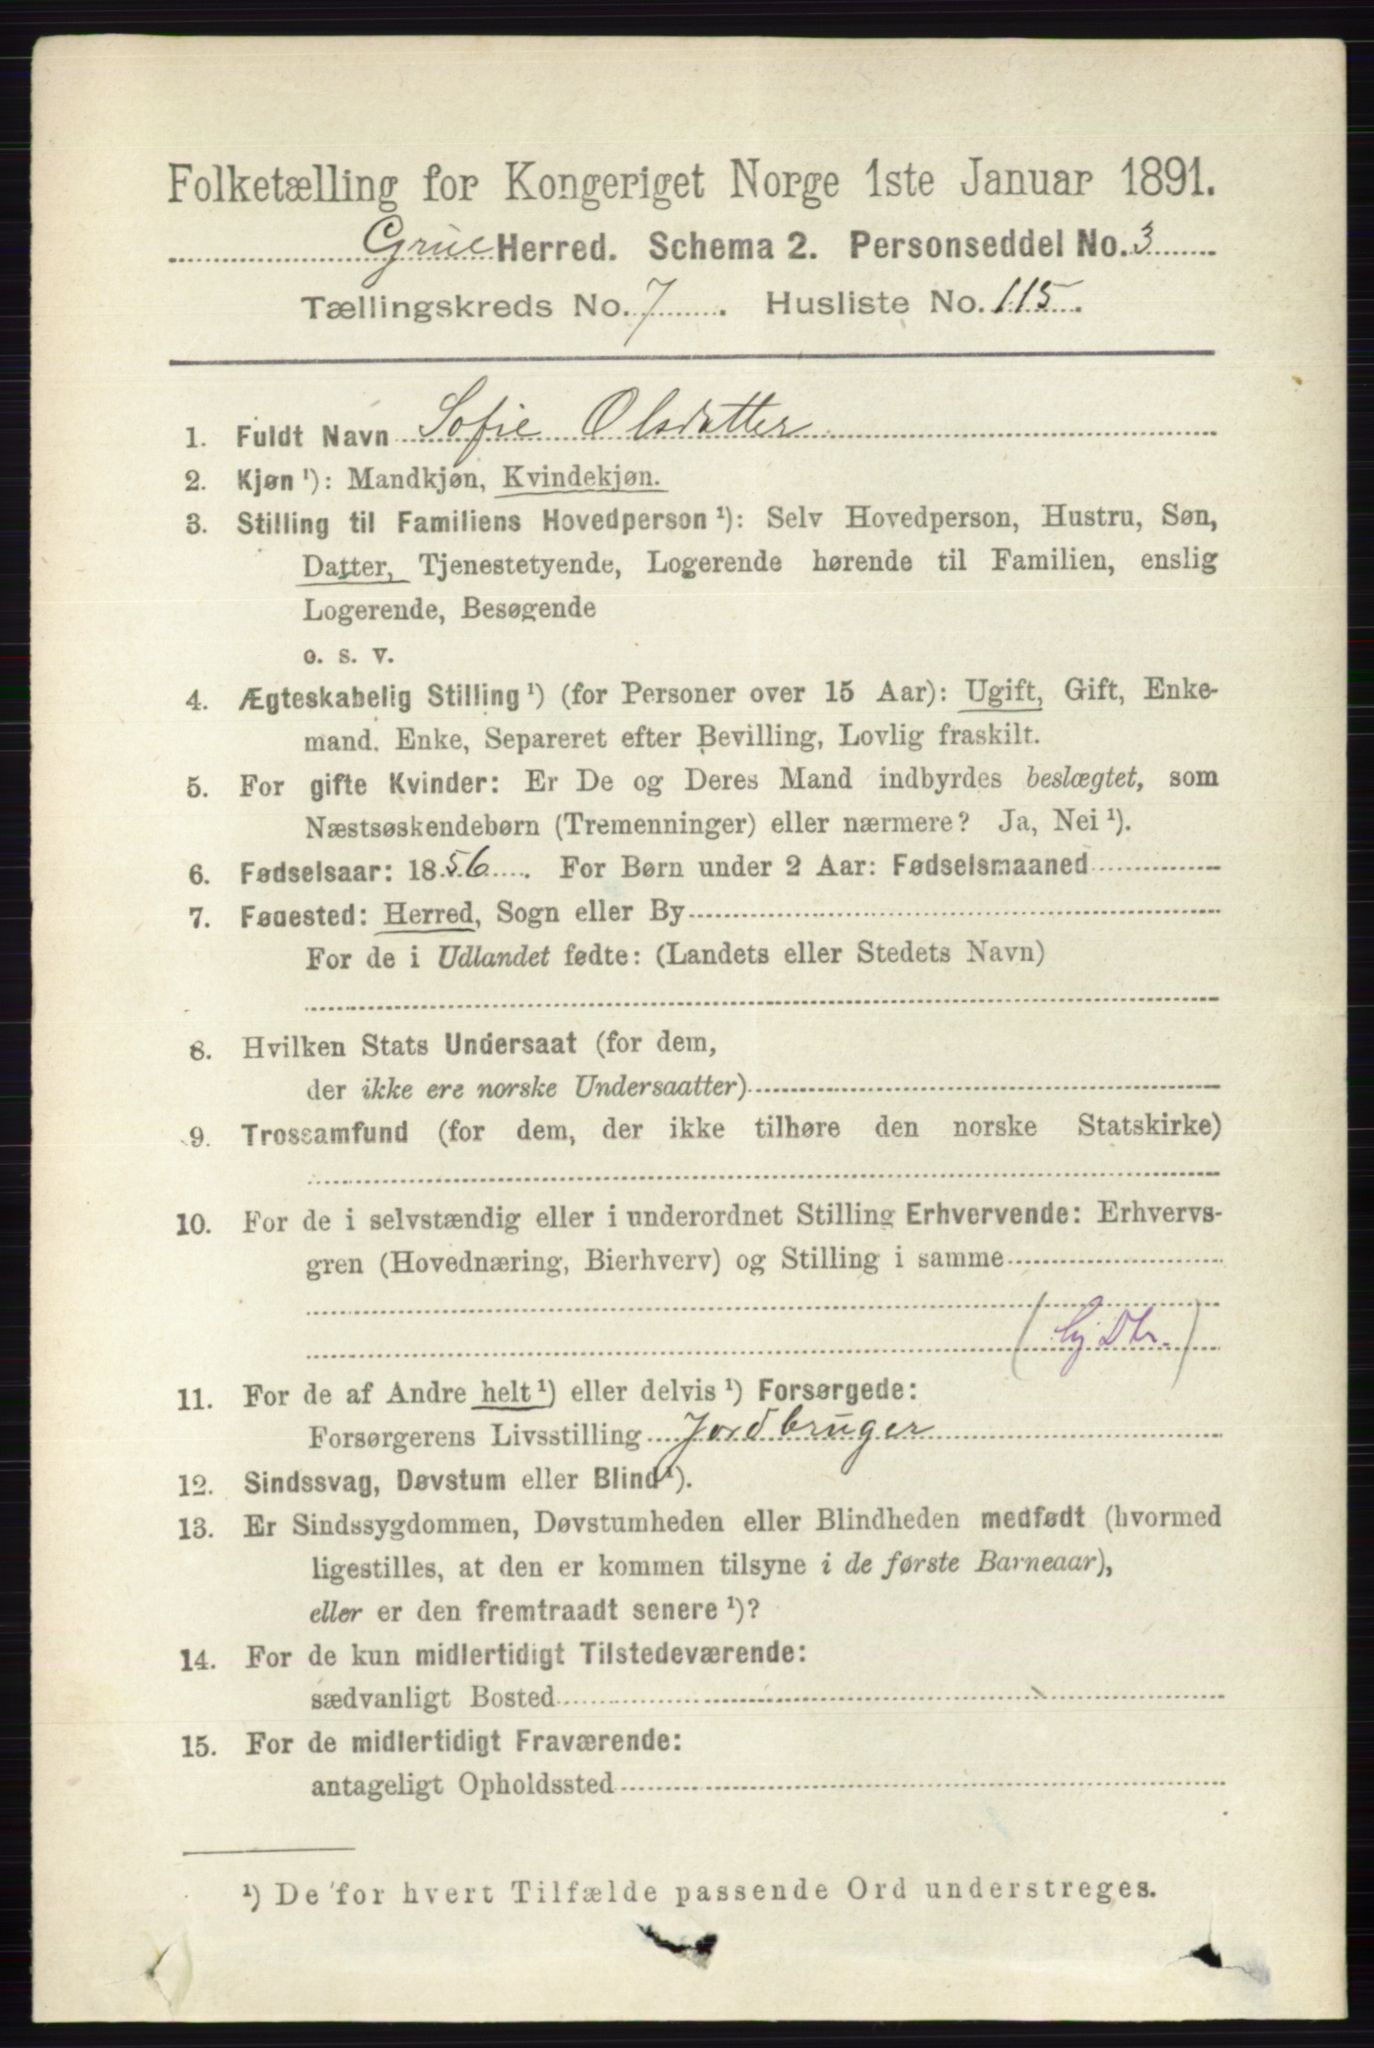 Folketælling for Kongeriget Norge 1ste Januar 1891.
Grue Herred. Schema 2. Personseddel No. 3
Tællingskreds No. 7. Husliste No. 115.
1. Fuldt Navn Sofie Olsdatter
2. Kjøn ¹): Mandkjøn, Kvindekjøn.
3. Stilling til Familiens Hovedperson ¹): Selv Hovedperson, Hustru, Søn,
Datter, Tjenestetyende, Logerende hørende til Familien, enslig
Logerende, Besøgende
o. s. v.
4. Ægteskabelig Stilling ¹) (for Personer over 15 Aar): Ugift, Gift, Enke-
mand, Enke, Separeret efter Bevilling, Lovlig fraskilt.
5. For gifte Kvinder: Er De og Deres Mand indbyrdes beslægtet, som
Næstsøskendebørn (Tremenninger) eller nærmere? Ja, Nei ¹).
6. Fødselsaar: 1856. For Børn under 2 Aar: Fødselsmaaned
7. Fødested: Herred, Sogn eller By
For de i Udlandet fødte: (Landets eller Stedets Navn)
8. Hvilken Stats Undersaat (for dem,
der ikke ere norske Undersaatter)
9. Trossamfund (for dem, der ikke tilhøre den norske Statskirke)
10. For de i selvstændig eller i underordnet Stilling Erhvervende: Erhvervs-
gren (Hovednæring, Bierhverv) og Stilling i samme
11. For de af Andre helt ¹) eller delvis ¹) Forsørgede:
Forsørgerens Livsstilling Jordbruger
12. Sindssvag, Døvstum eller Blind ¹).
13. Er Sindssygdommen, Døvstumheden eller Blindheden medfødt (hvormed
ligestilles, at den er kommen tilsyne i de første Barneaar),
eller er den fremtraadt senere ¹)?
14. For de kun midlertidigt Tilstedeværende:
sædvanligt Bosted
15. For de midlertidigt Fraværende:
antageligt Opholdssted
¹) De for hvert Tilfælde passende Ord understreges.